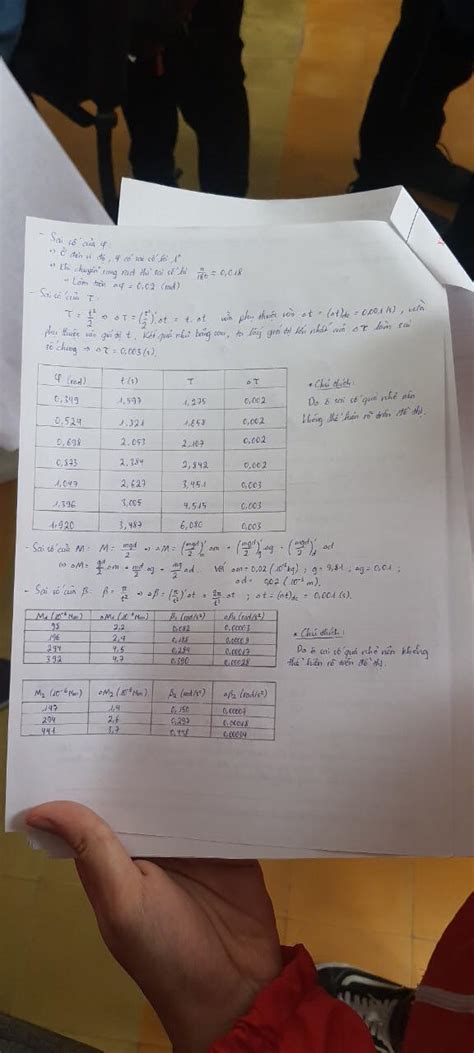 - Sai số của φ:
+ Ở đơn vị độ, φ có sai số bởi 1°
+ Khi chuyển sang rad thì sai số bởi π/180 = 0,018
→ Làm tròn Δφ = 0.02 (rad)
- Sai số của T:
T = t²/2 ⇒ ΔT = (t²/2)' Δt = t. Δt vẫn phụ thuộc vào Δt = (Δt)dc = 0.001 (s),
phụ thuộc vào giá trị t. Kết quả như bảng sau, ta lấy giá trị lớn nhất của ΔT làm sai
số chung ⇒ ΔT = 0,003 (s).
φ (rad) t (s) T ΔT
0,349 1,597 1,275 0,002
0,524 0,002
0,698 2,053 2,107 0,002
0,873 2,384 2,842 0,002
1,047 2,627 3,451 0,003
1,396 3,005 4,515 0,003
1,920 3,487 6,080 0,003
• Chú thích:
Do sai số quá nhỏ nên
không thể hiện rõ trên đồ thị.
- Sai số của M: M = mgd/2 ⇒ ΔM = (mgd/2)' Δm + (mgd/2)' Δg + (mgd/2)' Δd
⇒ ΔM = gd/2 Δm + md/2 Δg + mg/2 Δd. Với Δm = 0,02 (10⁻³kg) ; g = 9,81 ; Δg = 0,01 ;
Δd = 0,02 (10⁻³ m).
- Sai số của β: β = π/t² ⇒ Δβ = (π/t²)' Δt = 2π/t³ Δt ; Δt = (Δt)dc = 0,001 (s).
M₁ (10⁻⁶ Nm) ΔM₁ (10⁻⁶ Nm) β₁ (rad/s²) Δβ₁ (rad/s²)
98 2,2 0,082 0,00003
196 2,4 0,188 0,00009
294 4,5 0,284 0,00017
392 4,7 0,390 0,00028
• Chú thích:
Do sai số quá nhỏ nên không
thể hiện rõ trên đồ thị.
M₂ (10⁻⁶ Nm) ΔM₂ (10⁻⁶ Nm) β₂ (rad/s²) Δβ₂ (rad/s²)
147 1,4 0,150 0,00007
294 2,6 0,297 0,00018
441 3,7 0,00034